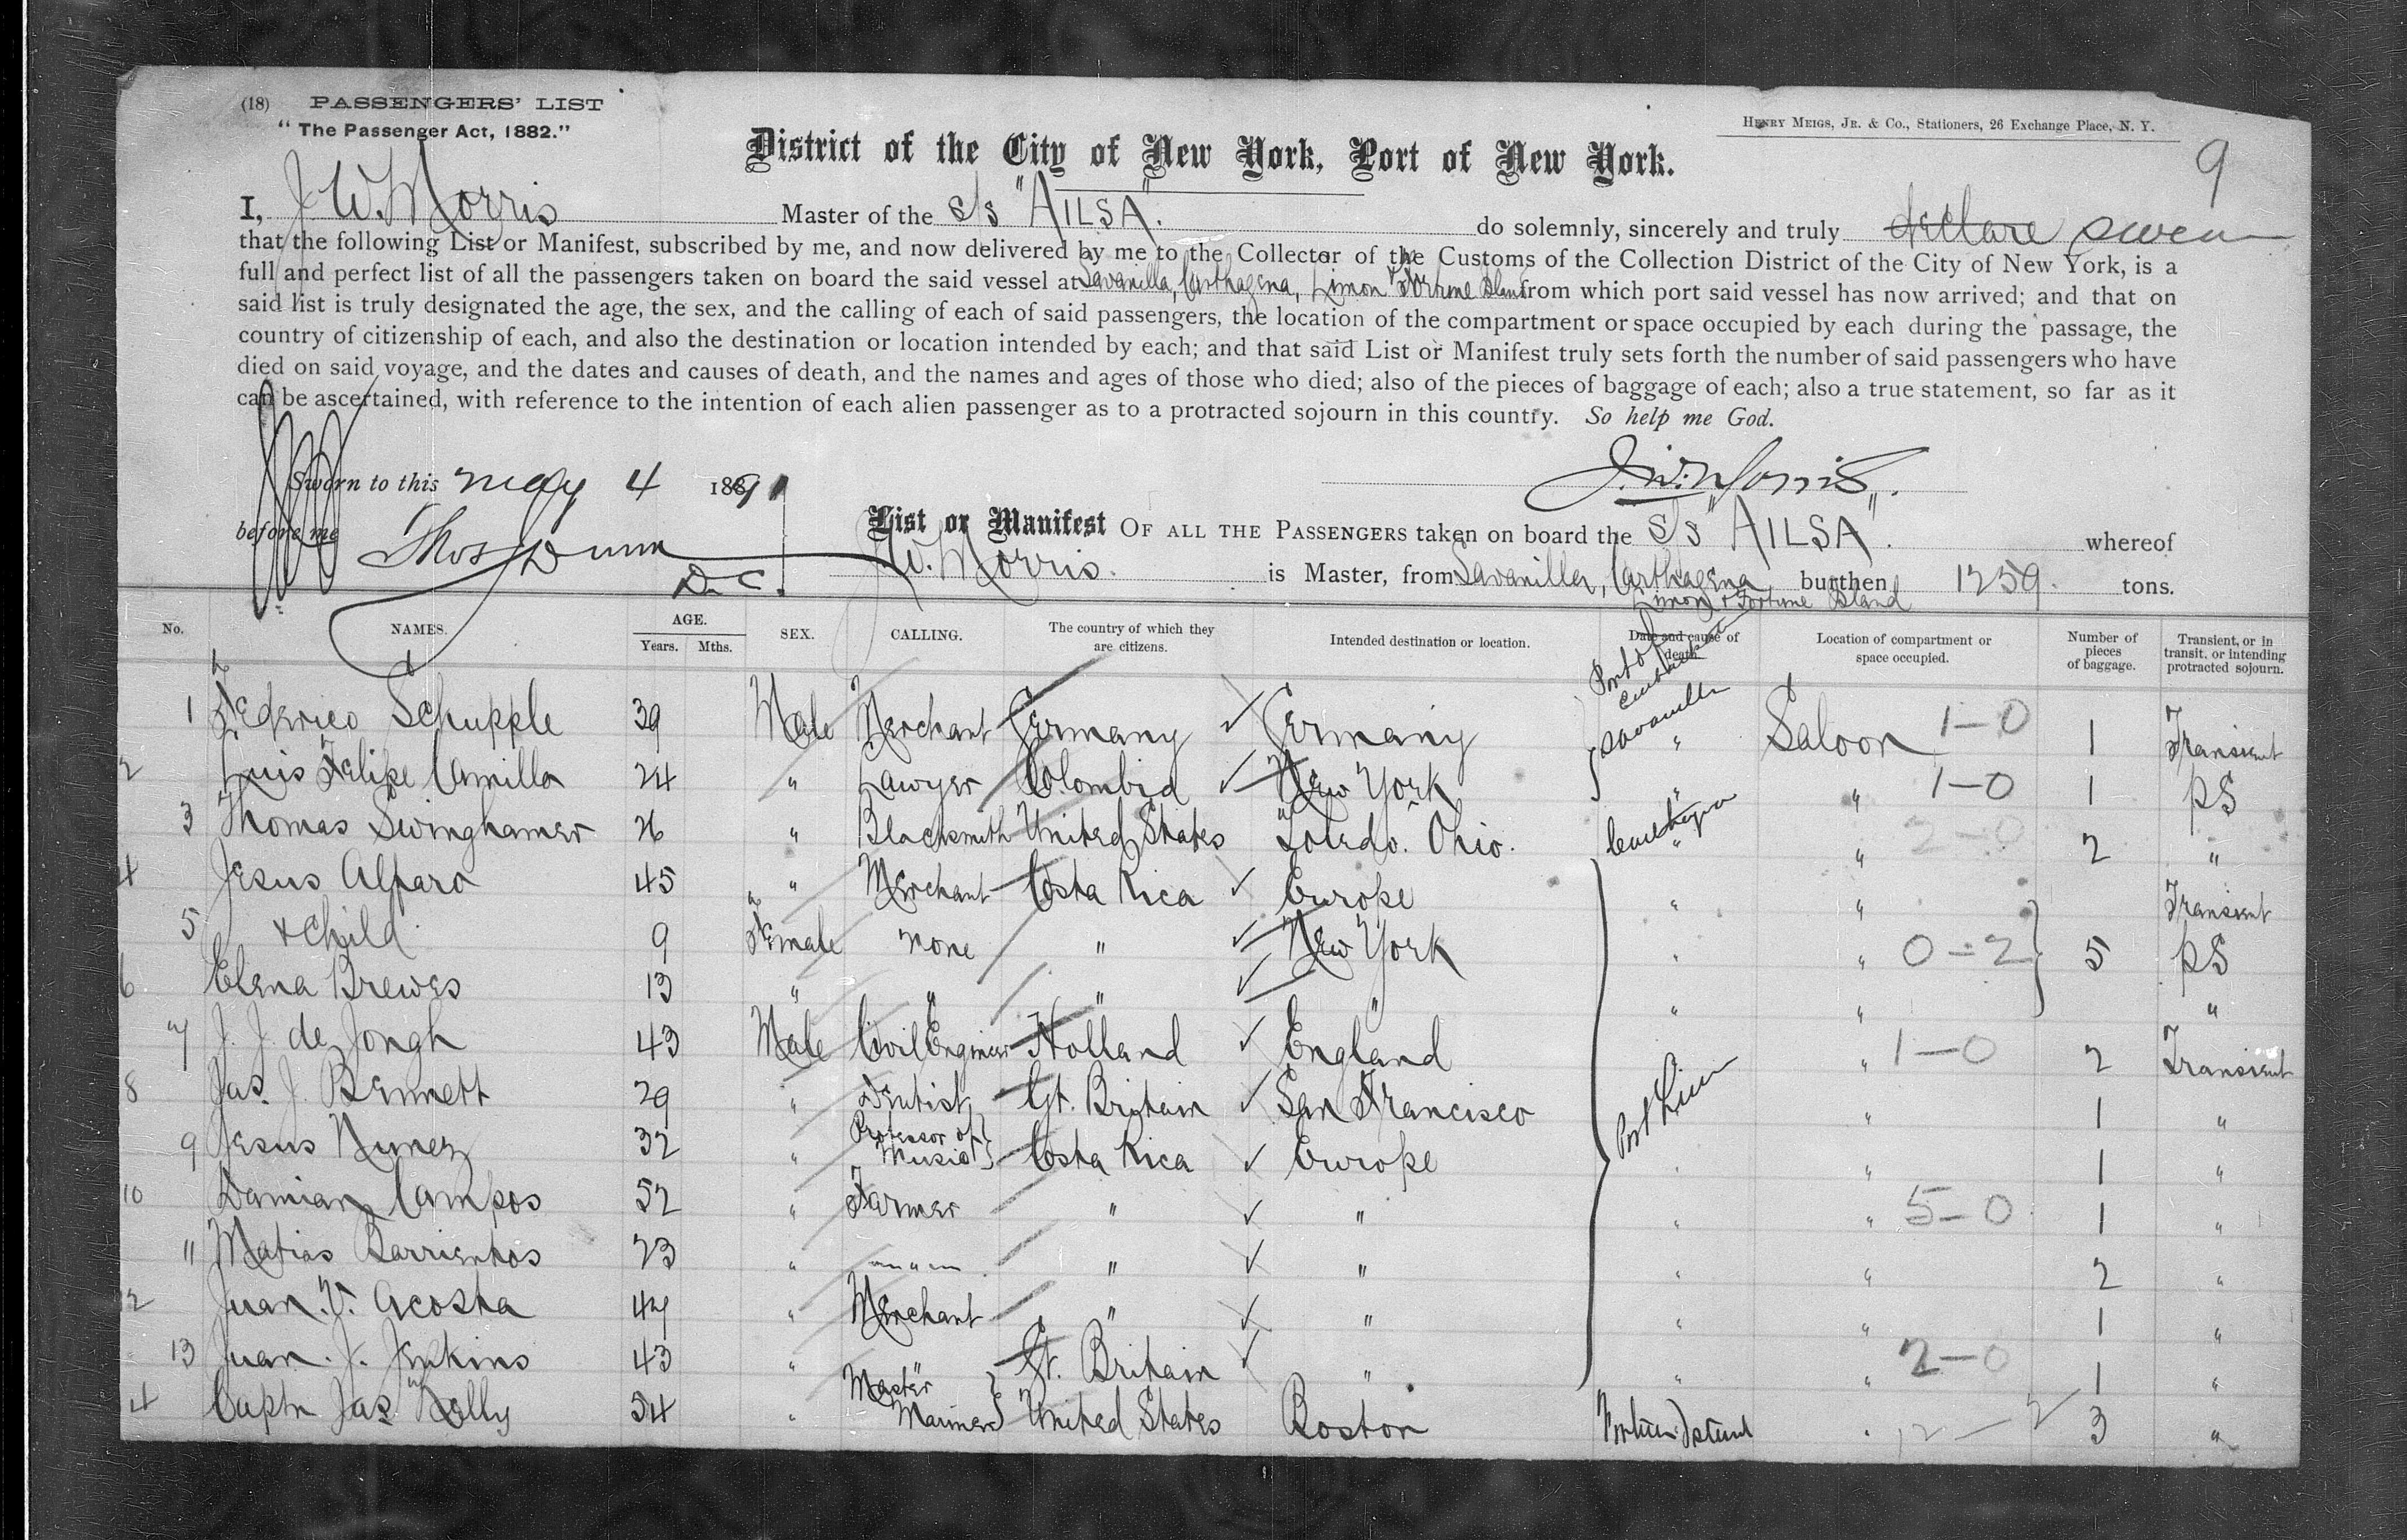 (18) PASSENGERS' LIST
"The Passenger Act, 1882."
HENRY MEIGS, JR. & CO., Stationers, 26 Exchange Place, N. Y.
9
District of the City of New York, Port of New York.
I, J. W. Morris Master of the S/S "AILSA". do solemnly, sincerely and truly declare swear
that the following List or Manifest, subscribed by me, and now delivered by me to the Collector of the Customs of the Collection District of the City of New York, is a
full and perfect list of all the passengers taken on board the said vessel at Savanilla, Carthagena, Limon & Fortune Island from which port said vessel has now arrived; and that on
said list is truly designated the age, the sex, and the calling of each of said passengers, the location of the compartment or space occupied by each during the passage, the
country of citizenship of each, and also the destination or location intended by each; and that said List or Manifest truly sets forth the number of said passengers who have
died on said voyage, and the dates and causes of death, and the names and ages of those who died; also of the pieces of baggage of each; also a true statement, so far as it
can be ascertained, with reference to the intention of each alien passenger as to a protracted sojourn in this country. So help me God.
Sworn to this May 4 1891 J. W. Morris.
before me Thos Dunn
D. C.
List or Manifest OF ALL THE PASSENGERS taken on board the S/S "AILSA". whereof
J. W. Morris. is Master, from Savanilla, Carthagena burthen 1259. tons.
Limon & Fortune Island
No. NAMES. AGE. Years. Mths. SEX. CALLING. The country of which they are citizens. Intended destination or location. Date and cause of death Location of compartment or space occupied. Number of pieces of baggage. Transient, or in transit, or intending protracted sojourn.
Port of
1 Federico Schupple 39 Male Merchant Germany Germany Savanilla Saloon 1-0 1 Transient
2 Luis Felipe Camilla 24 " Lawyer Colombia New York " " 1-0 1 PS
3 Thomas Swinghamer 26 " Blacksmith United States Toledo. Ohio. " " 2-0 2 "
4 Jesus Alfaro 45 " Merchant Costa Rica Europe " " Transient
5 & Child 9 Female none " New York " " 0-2 5 PS
6 Elena Brewes 13 " " " " " " "
7 J. J. de Jongh 43 Male Civil Engineer Holland England " 1-0 2 Transient
8 Jas. J. Bennett 29 " Dentist Gt. Britain San Francisco Port Limon " 1 "
9 Jesus Nunez 32 " Professor of Music Costa Rica Europe " " 1 "
10 Damian Campos 52 " Farmer " " " " 5-0 1 "
11 Matias Barrientos 23 " " " " " " 2 "
12 Juan. V. Acosta 44 " Merchant " " " " 1 "
13 Juan. J. Jenkins 43 " " Gt. Britain " " " 2-0 1 "
14 Captn Jas Kelly 54 " Master Mariner United States Boston Fortune Island " 3 "